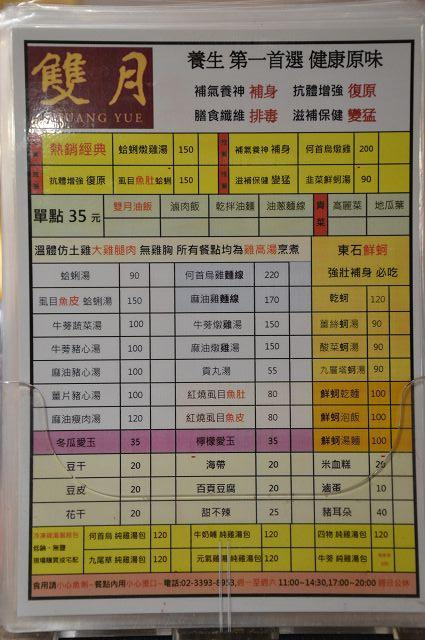 雙月
SHUANG YUE
養生 第一首選 健康原味
補氣養神 補身 抗體增強 復原
膳食纖維 排毒 滋補保健 變猛
熱銷經典 蛤蜊燉雞湯 150 補氣養神 補身 何首烏燉雞 200
抗體增強 復原 虱目魚肚蛤蜊 150 滋補保健 變猛 韭菜鮮蚵湯 90
單點 35 元 雙月油飯 滷肉飯 乾拌油麵 油蔥麵線 青菜 高麗菜 地瓜葉
溫體仿土雞大雞腿肉 無雞胸 所有餐點均為雞高湯烹煮
東石鮮蚵
強壯補身 必吃
蛤蜊湯 90 何首烏雞麵線 220
虱目魚皮 蛤蜊湯 150 麻油雞麵線 170 乾蚵 120
牛蒡蔬菜湯 100 牛蒡燉雞湯 150 薑絲蚵湯 90
牛蒡豬心湯 100 麻油燉雞湯 150 酸菜蚵湯 90
麻油豬心湯 100 貢丸湯 55 九層塔蚵湯 90
薑片豬心湯 100 紅燒虱目魚肚 80 鮮蚵乾麵 100
麻油瘦肉湯 120 紅燒虱目魚皮 80 鮮蚵泡飯 100
冬瓜愛玉 35 檸檬愛玉 35 鮮蚵湯麵 100
豆干 20 海帶 20 米血糕 20
豆皮 20 百頁豆腐 20 滷蛋 10
花干 20 甜不辣 25 豬耳朵 40
何首烏 純雞湯包 120 牛奶埔 純雞湯包 120 四物 純雞湯包 120
低鈉、無鹽
現場購買或宅配
九尾草 純雞湯包 120 元氣雞 純雞湯包 120 牛蒡 純雞湯包
食用請小心魚刺~餐點內用小心燙口~電話:02-3393-8953,週一至週六 11:00~14:30,17:00~20:00 週日公休